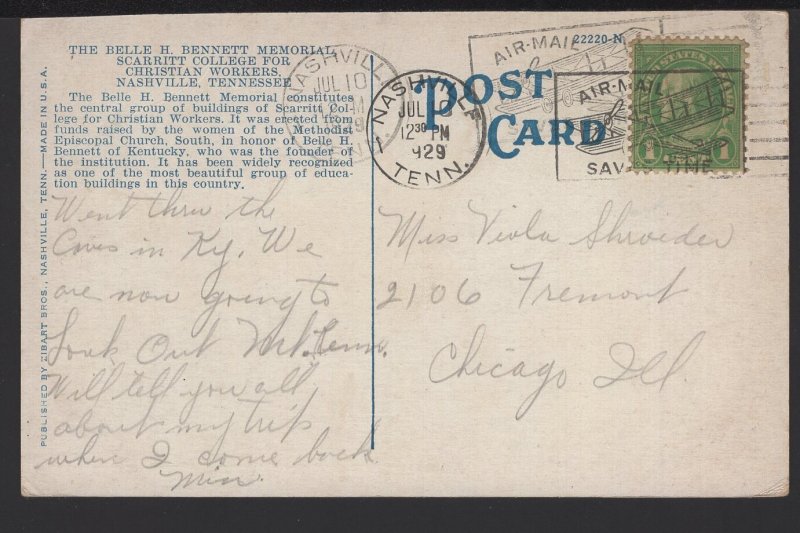 THE BELLE H. BENNETT MEMORIAL
SCARRITT COLLEGE FOR
CHRISTIAN WORKERS,
NASHVILLE, TENNESSEE
The Belle H. Bennett Memorial constitutes
the central group of buildings of Scarritt Col-
lege for Christian Workers. It was erected from
funds raised by the women of the Methodist
Episcopal Church, South, in honor of Belle H.
Bennett of Kentucky, who was the founder of
the institution. It has been widely recognized
as one of the most beautiful group of educa-
tion buildings in this country.
PUBLISHED BY ZIBART BROS., NASHVILLE, TENN.—MADE IN U.S.A.
Went thru the
Caves in Ky. We
are now going to
Look Out Mt. Tenn.
Will tell you all
about my trip
when I come back
NASHVILLE
JUL 10
NASHVILLE
JUL 10
12 30 PM
1929
TENN.
POST
CARD
22220-N
AIR-MAIL
AIR-MAIL
SAVES TIME
1 1
Miss Viola Shroeder
2106 Fremont
Chicago Ill.